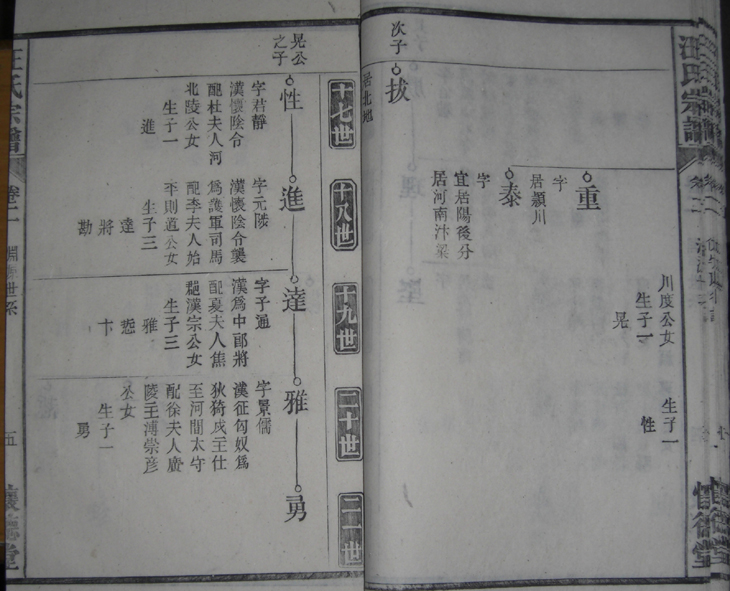 汪氏宗譜
次子
拔
居北地
重
字
居潁川
泰
字
宜居陽後分
居河南汴梁
川度公女
生子一
晃
生子一
性
懷德堂
十七世
十八世
十九世
二十世
二一世
晃公
之子
性
字君靜
漢懷陰令
配杜夫人河
北陵公女
生子一
進
進
字元陟
漢懷陰令襲
為護軍司馬
配李夫人始
平則道公女
生子三
達
將
勘
達
字子通
漢為中郎將
配夏夫人焦
漢宗公女
生子三
雅
卞
雅
字景儒
漢征匈奴為
至河間太守
配徐夫人廣
陵王溥崇彥
公女
生子一
勇
勇
汪氏宗譜
卷二
五
懷德堂